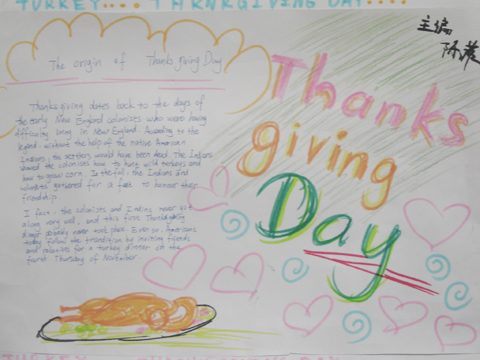 TURKEY.... THANKGIVING DAY....
主编
The origin of Thanks giving Day
Thanks giving dates back to the days of
the early New England colonises who were having
difficulty living in New England. According to the
legend without the help of the native American
Indians, the settlers would have been dead. The Indians
showed the colonises how to hung wild turkeys and
how to grow corn. In the fall, the Indians and
colonises gathered for a fest to honour their
friendship.
I fact, the colonists and Indians never got
along very well, and this first Thanksgiving
dinner probably never took place. Even so, Americans
today follow the tradition by inviting friends
and relatives for a turkey dinner on the
fourth Thursday of November.
Thanks
giving
Day